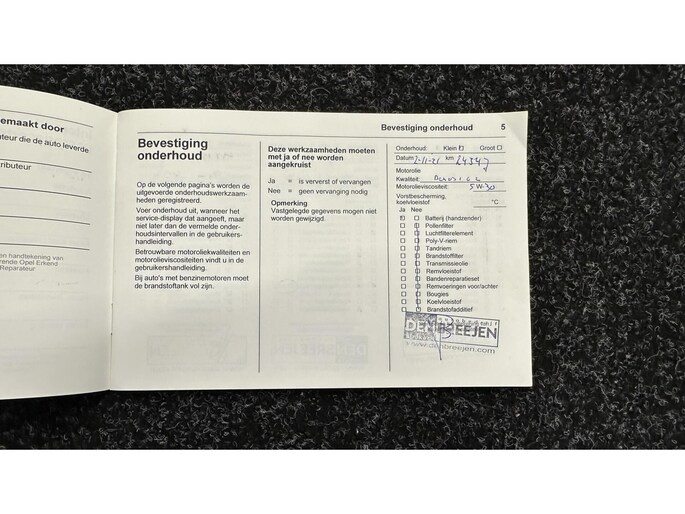 emaakt door
teur die de auto leverde
tributeur
en handtekening van
rende Opel Erkend
Reparateur
Bevestiging onderhoud 5
Bevestiging
onderhoud
Op de volgende pagina's worden de
uitgevoerde onderhoudswerkzaam-
heden geregistreerd.
Voer onderhoud uit, wanneer het
service-display dat aangeeft, maar
niet later dan de vermelde onder-
houdsintervallen in de gebruikers-
handleiding.
Betrouwbare motoroliekwaliteiten en
motorolieviscositeiten vindt u in de
gebruikershandleiding.
Bij auto's met benzinemotoren moet
de brandstoftank vol zijn.
Deze werkzaamheden moeten
met ja of nee worden
aangekruist
Ja = is ververst of vervangen
Nee = geen vervanging nodig
Opmerking
Vastgelegde gegevens mogen niet
worden gewijzigd.
Onderhoud: Klein Groot
Datum km
Motorolie
Kwaliteit:
Motorolieviscositeit: 5W-30
Vorstbescherming,
koelvloeistof °C
Ja Nee
Batterij (handzender)
Pollenfilter
Luchtfilterelement
Poly-V-riem
Tandriem
Brandstoffilter
Transmissieolie
Remvloeistof
Bandenreparatieset
Remvoeringen voor/achter
Bougies
Koelvloeistof
Brandstofadditief
DEN BREEJEN
www.denbreejen.com